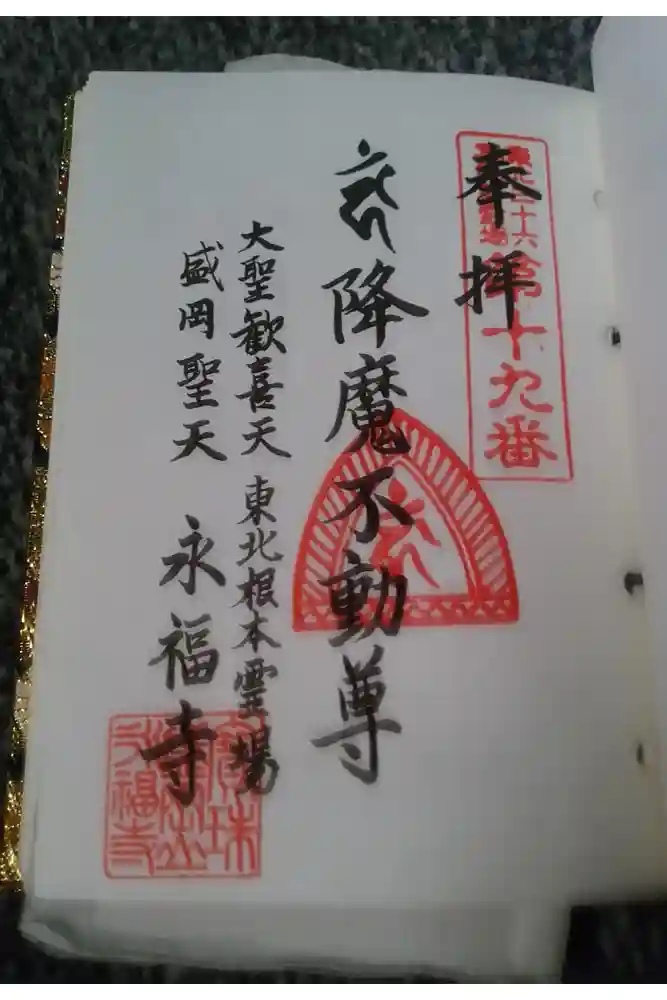 奉拝
東北三十六
不動霊場
第十九番
降魔不動尊
大聖歓喜天 東北根本霊場
盛岡聖天 永福寺
宝珠
永福寺